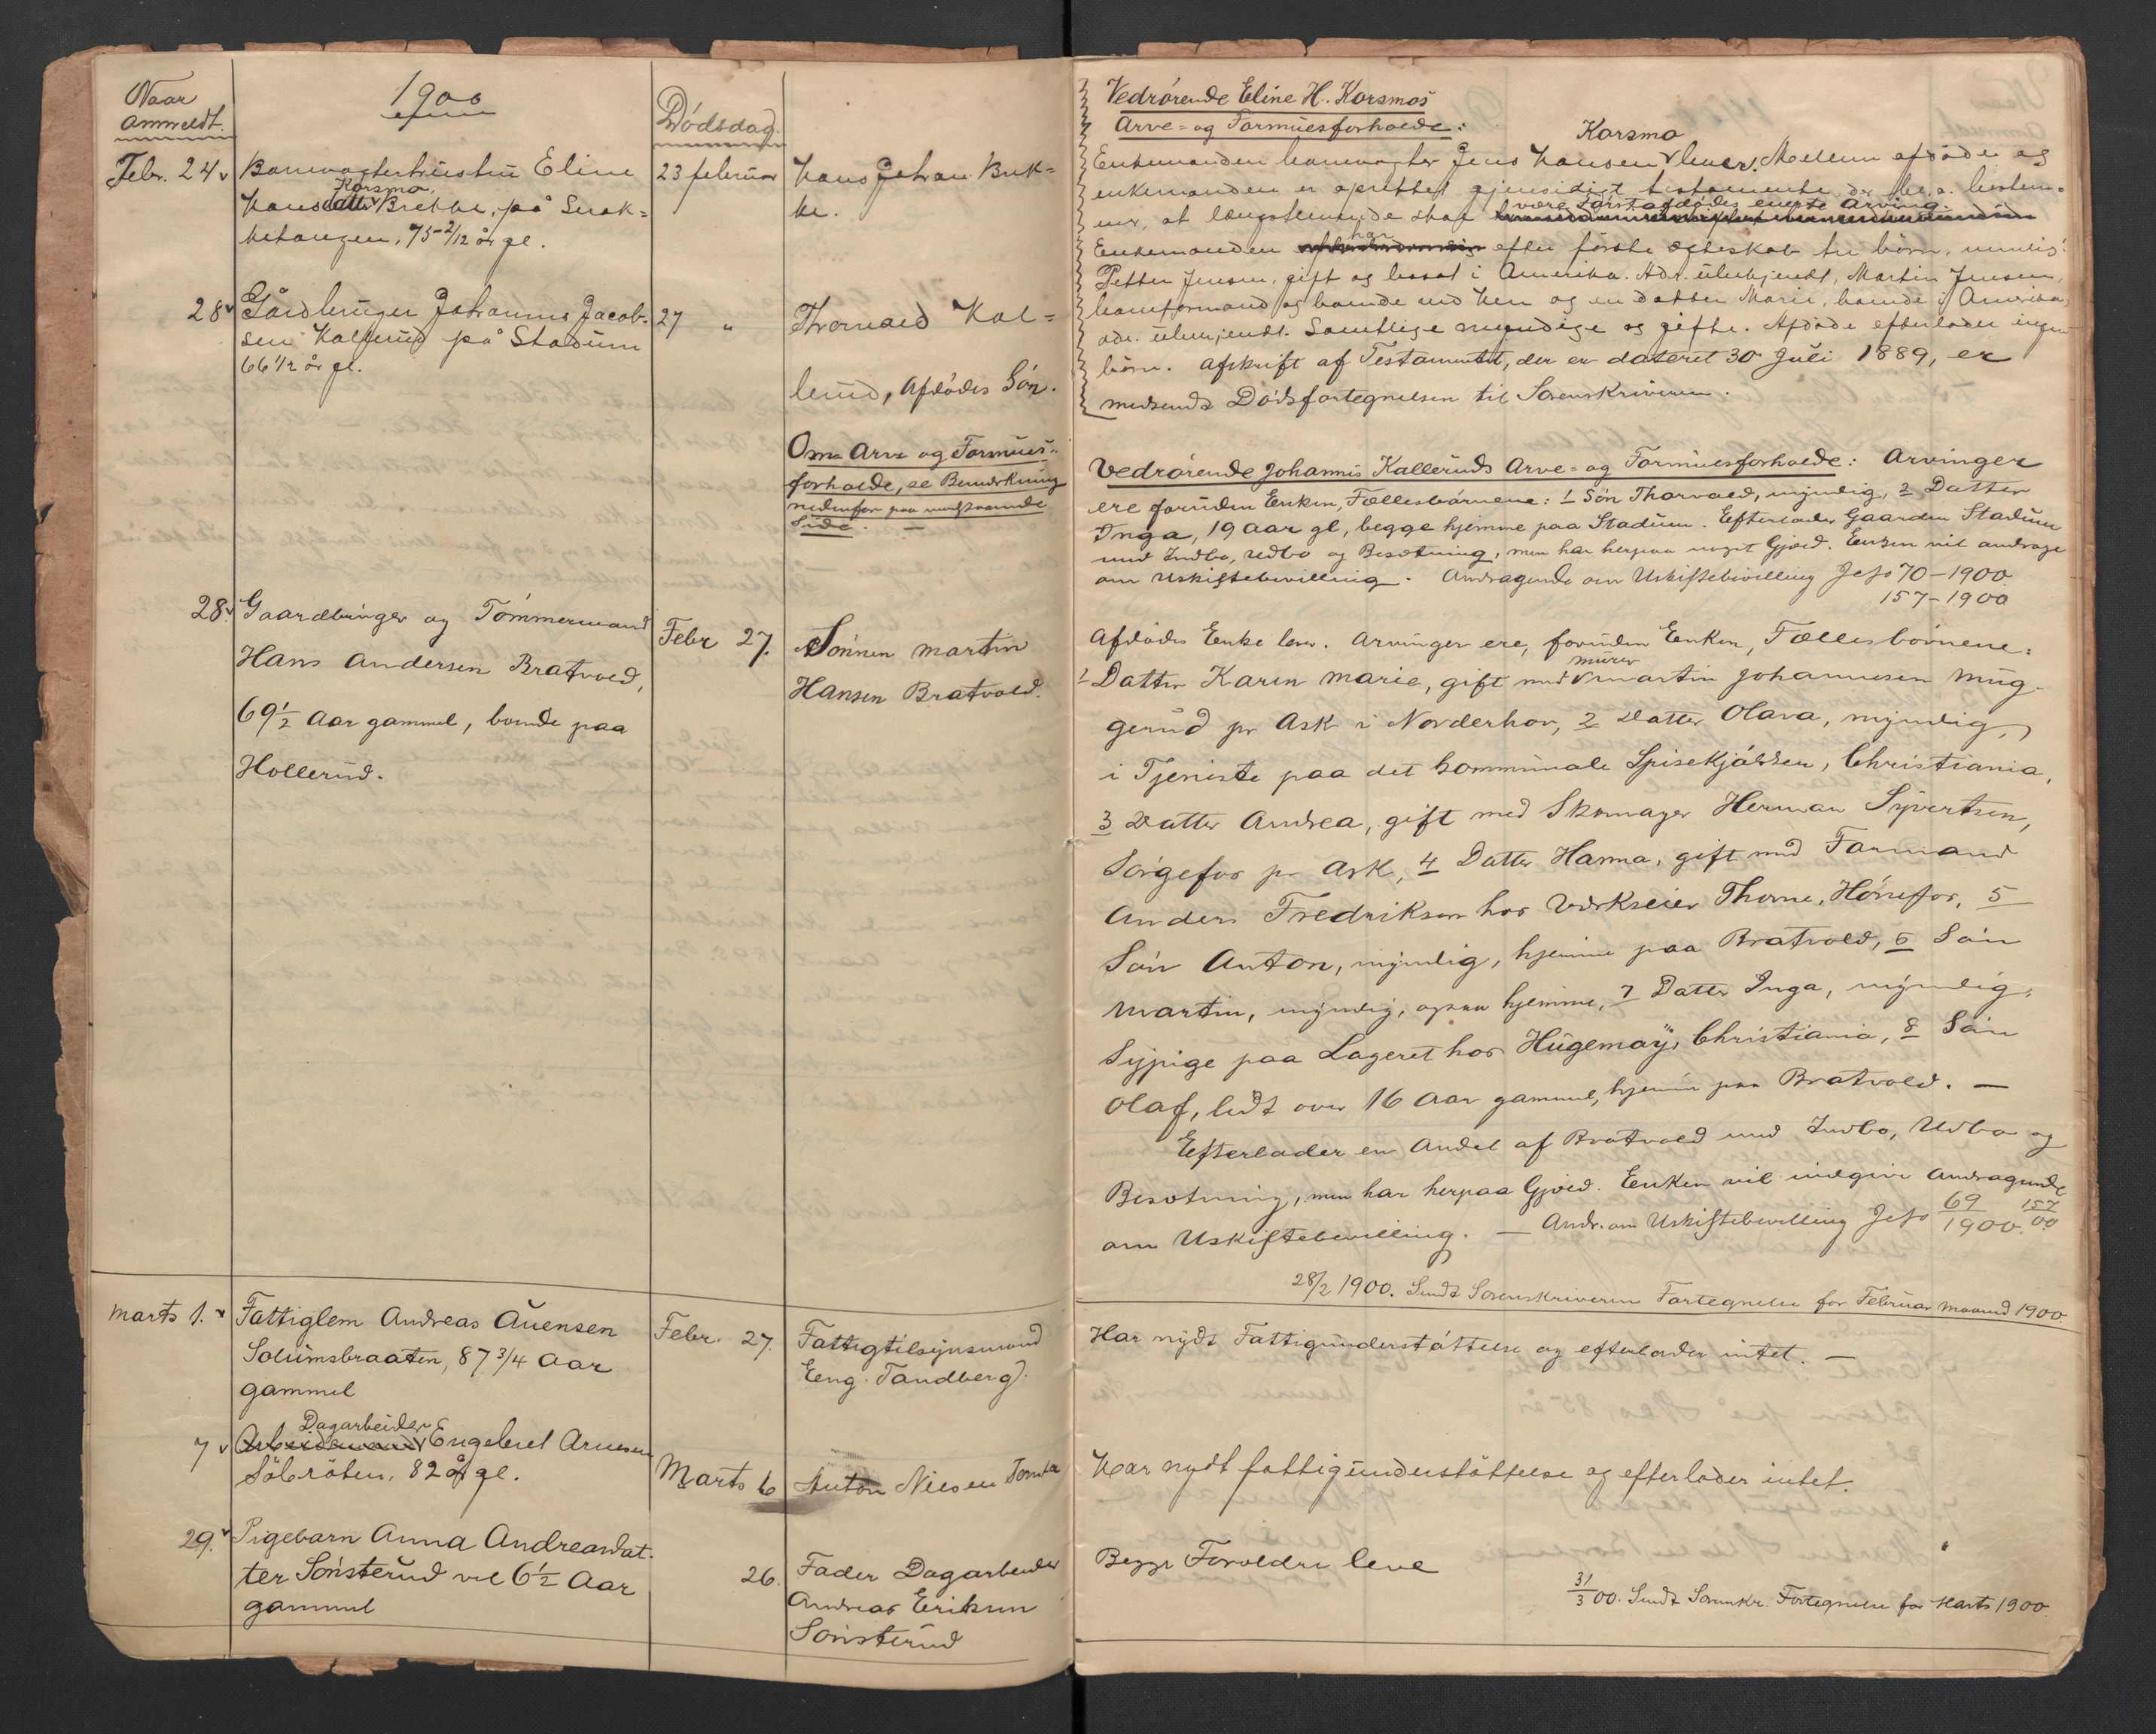 Naar
Anmeldt.
1900
Dödsdag.
Febr. 24
Banevogterhustru Eline
Korsmo
Hansdatter Brekke, på Snek=
kehaugen, 75 2/12 år gl.
23 februar
Hans Johan Brek=
ke.
28
Gårdbruger Johannes Jacob-
sen Kallerud på Stadum
66 1/2 år gl.
27 "
Thorvald Kal=
lerud, Afdödes Sön.
Om Arve og Formues-
forholde, se Bemærkning
nedenfor paa modstaaende
Side. —
28.
Gaardbruger og Tömmermand
Hans Andersen Bratvold,
69 1/2 Aar gammel, boende paa
Hollerud.
Febr 27.
Sönnen Martin
Hansen Bratvold.
Marts 1.
Fattiglem Andreas Auensen
Solumsbraaten, 87 3/4 Aar
gammel
Febr. 27.
Fattigtilsynsmand
Eng. Tandberg.
7
Dagarbeider
Arbeidsmand Engebret Arnesen
Sölvröten, 82 år gl.
Marts 6
Anton Nilsen Tomta
29.
Pigebarn Anna Andreasdat-
ter Sönsterud vel 6 1/2 Aar
gammel
26.
Fader Dagarbeider
Andreas Eriksen
Sönsterud
Vedrörende Eline H. Korsmos
Arve- og Formuesforholde:
Korsmo
Enkemanden banevogter Jens Hansen lever. Mellem afdöde og
enkemanden er oprettet gjensidigt testamente der bl.a. bestem=
være förstafdödes eneste Arving.
mer, at længstlevende skal
har
Enkemanden efter förste ægteskab tre börn, nemlig:
Petter Jensen, gift og bosat i Amerika. Adr. ubekjendt, Martin Jensen,
baneformand og boende ved Hen og en datter Marie, boende i Amerika,
adr. ubekjendt. Samtlige myndige og gifte. Afdöde efterlader ingen
börn. Afskrift af Testamentet, der er dateret 30 Juli 1889, er
medsendt Dödsfortegnelsen til Sorenskriveren.
Vedrörende Johannes Kalleruds Arve- og Formuesforholde: Arvinger
ere foruden Enken, Fællesbörnene: 1 Sön Thorvald, myndig, 2 Datter
Inga, 19 aar gl, begge hjemme paa Stadum. Efterlader Gaarden Stadum
med Indbo, Udbo og Besætning, men har herpaa noget Gjæld. Enken vil andrage
om Uskiftebevilling. Andragende om Uskiftebevilling Jo 70-1900
157-1900
Afdödes Enke lever. Arvinger ere, foruden Enken, Fællesbörnene:
murer
1 Datter Karen Marie, gift med Martin Johannesen Mug-
gerud pr Ask i Norderhov, 2 Datter Olava, myndig,
i Tjeneste paa det kommunale Spisekjökken, Christiania,
3 Datter Andrea, gift med Skomager Herman Syvertsen,
Sörgefos pr Ask, 4 Datter Hanna, gift med Formand
Anders Fredriksen hos Værkseier Thorne, Hönefos, 5
Sön Anton, myndig, hjemme paa Bratvold, 6 Sön
Martin, myndig, ogsaa hjemme, 7 Datter Inga, myndig,
Sypige paa Lageret hos Hugemay, Christiania, 8 Sön
Olaf, lidt over 16 Aar gammel, hjemme paa Bratvold. —
Efterlader en Andel af Bratvold med Indbo, Udbo og
Besætning, men har herpaa Gjæld. Enken vil indgive Andragende
om Uskiftebevilling. — Andr. om Uskiftebevilling Jo 69/1900. 157/00
28/2 1900. Sendt Sorenskriveren Fortegnelse for Februar Maaned 1900
Har nydt Fattigunderstöttelse og efterlader intet. —
Har nydt fattigunderstöttelse og efterlader intet.
Begge Forældre leve
31/3 00. Sendt Sorenskr. Fortegnelse for Marts 1900.